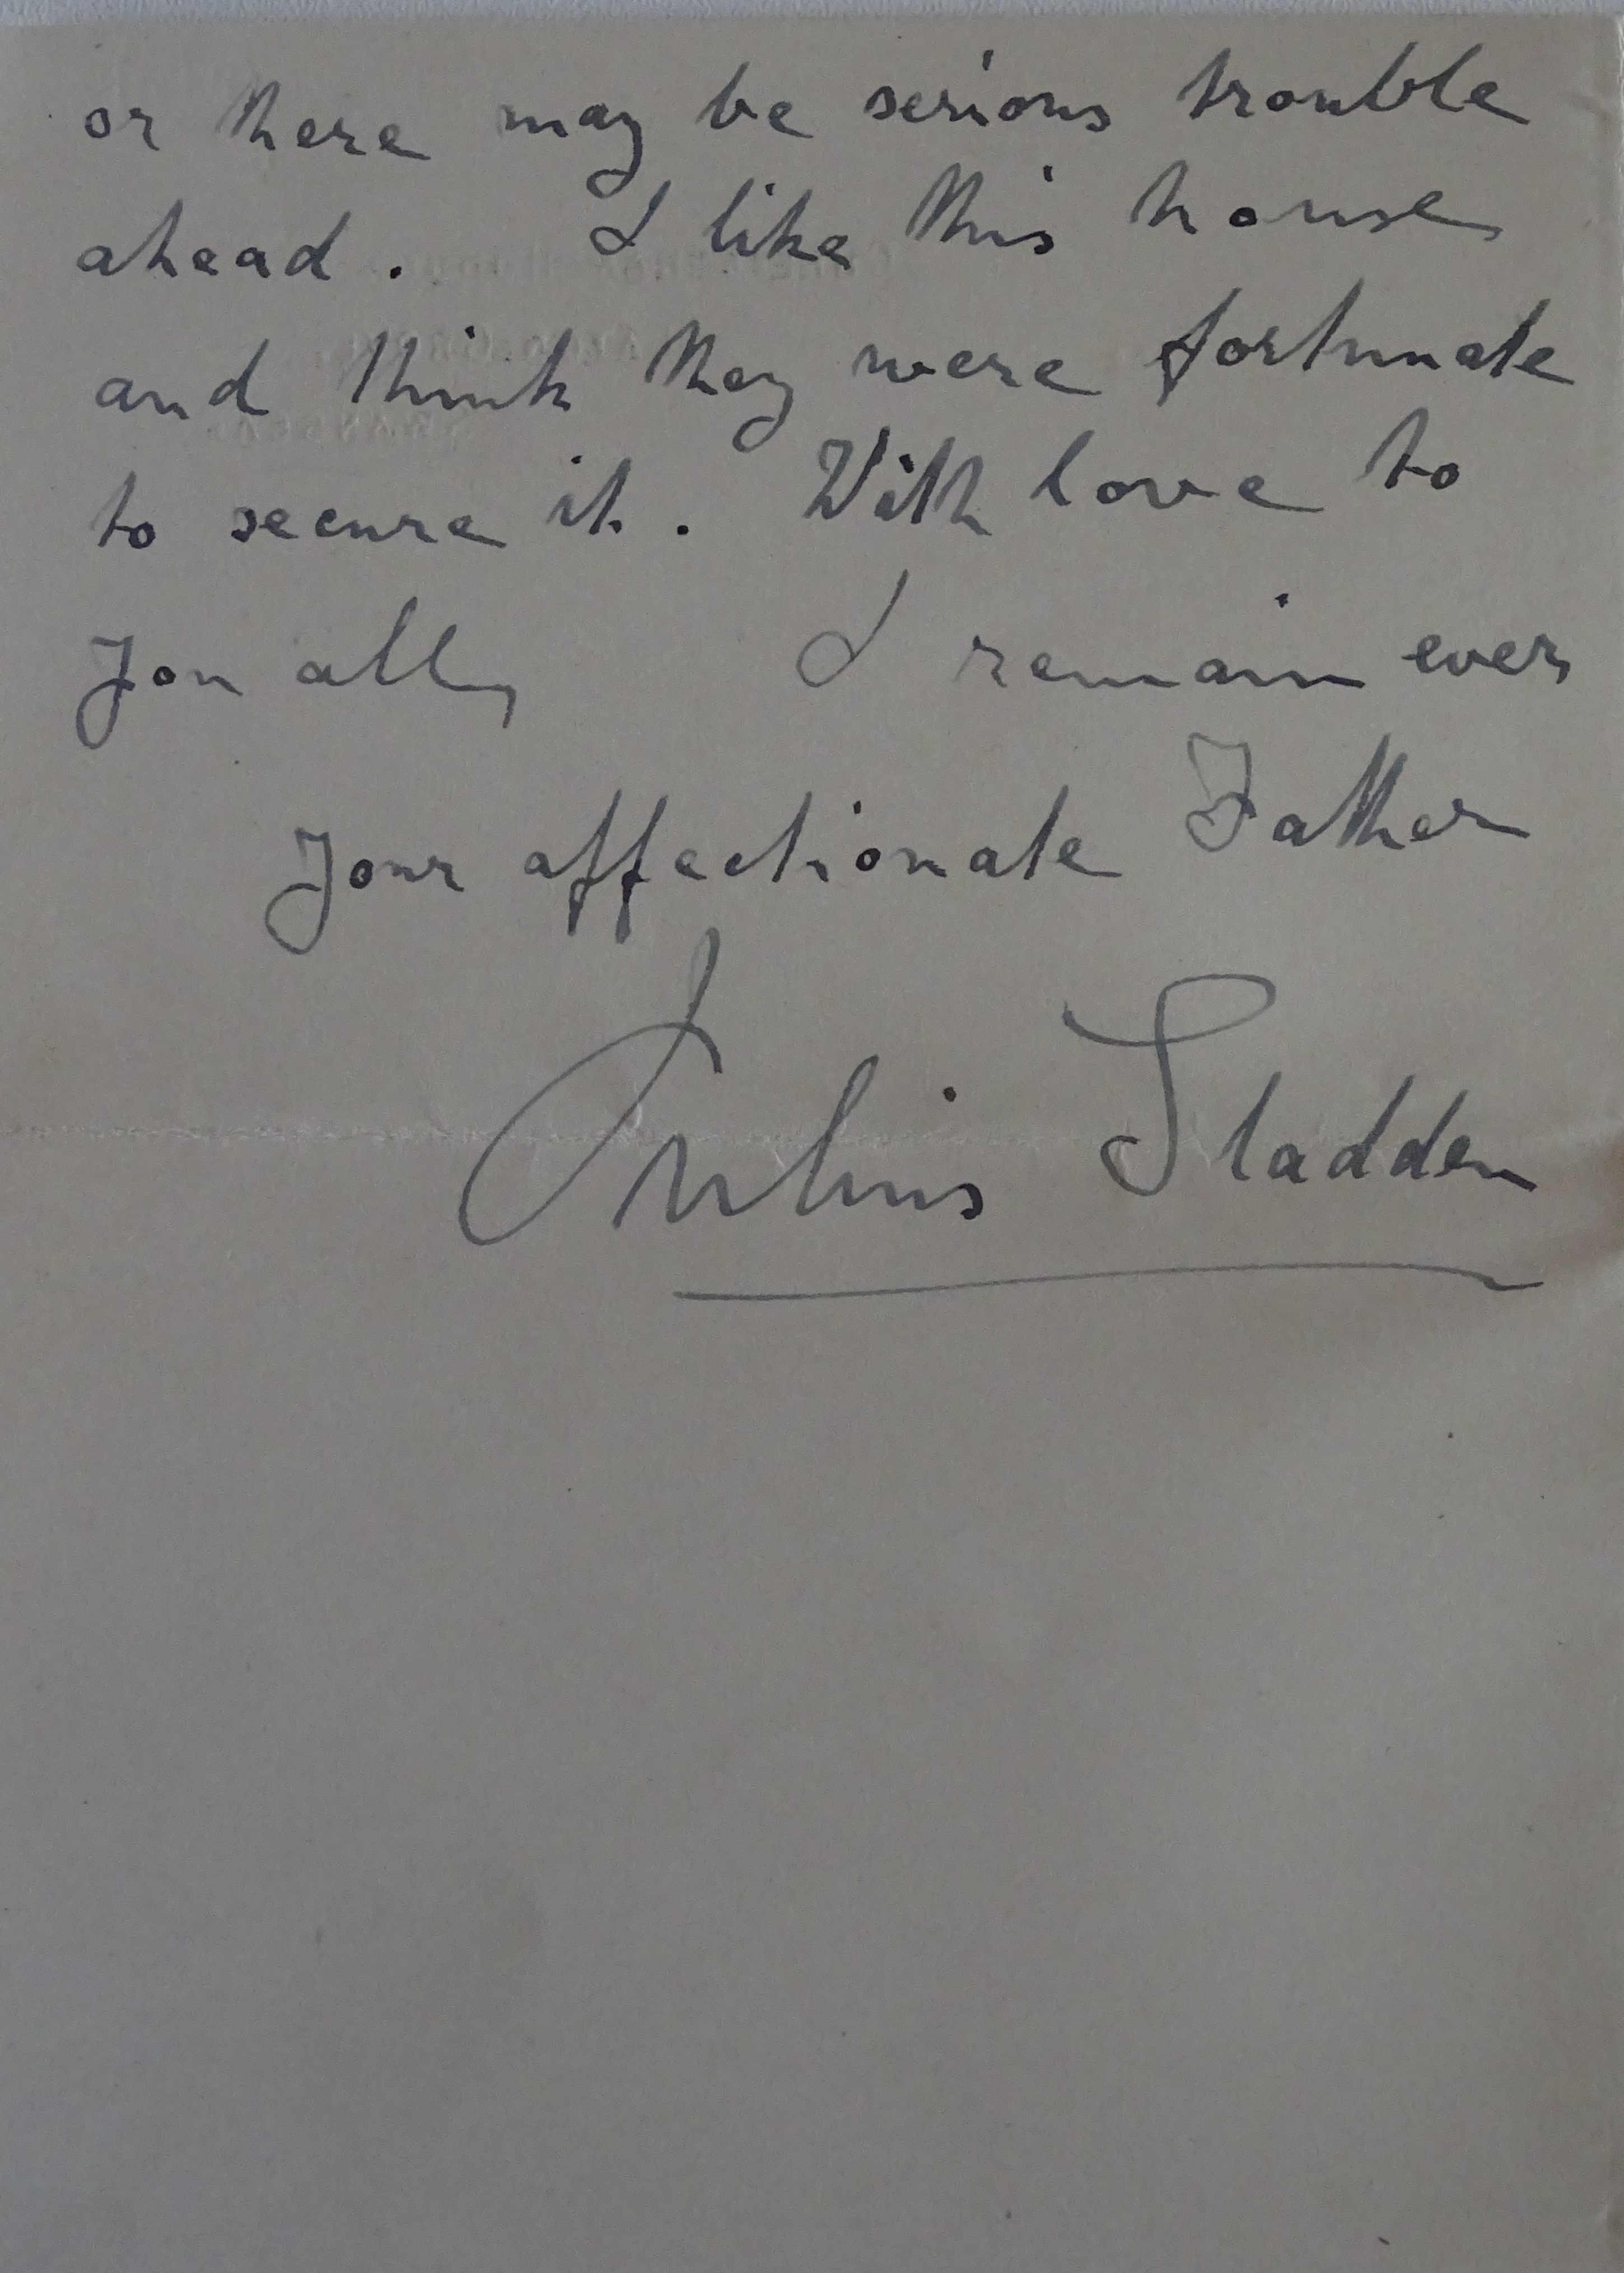 or there may be serious trouble
ahead. I like this house
and think they were fortunate
to secure it. With love to
you all, I remain ever
Your affectionate Father
Julius Sladden